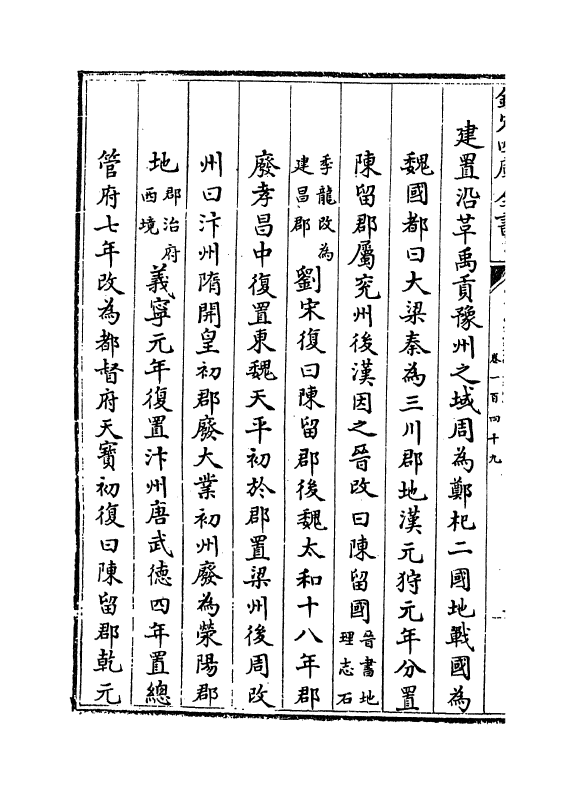 欽定四庫全書
卷一百四十九
建置沿革禹貢豫州之域周為鄭杞二國地戰國為
魏國都曰大梁秦為三川郡地漢元狩元年分置
陳留郡屬兖州後漢因之晉改曰陳留國晉書地理志石
季龍改為建昌郡劉宋復曰陳留郡後魏太和十八年郡
廢孝昌中復置東魏天平初於郡置梁州後周改
州曰汴州隋開皇初郡廢大業初州廢為滎陽郡
地郡治府西境義寧元年復置汴州唐武德四年置總
管府七年改為都督府天寳初復曰陳留郡乾元